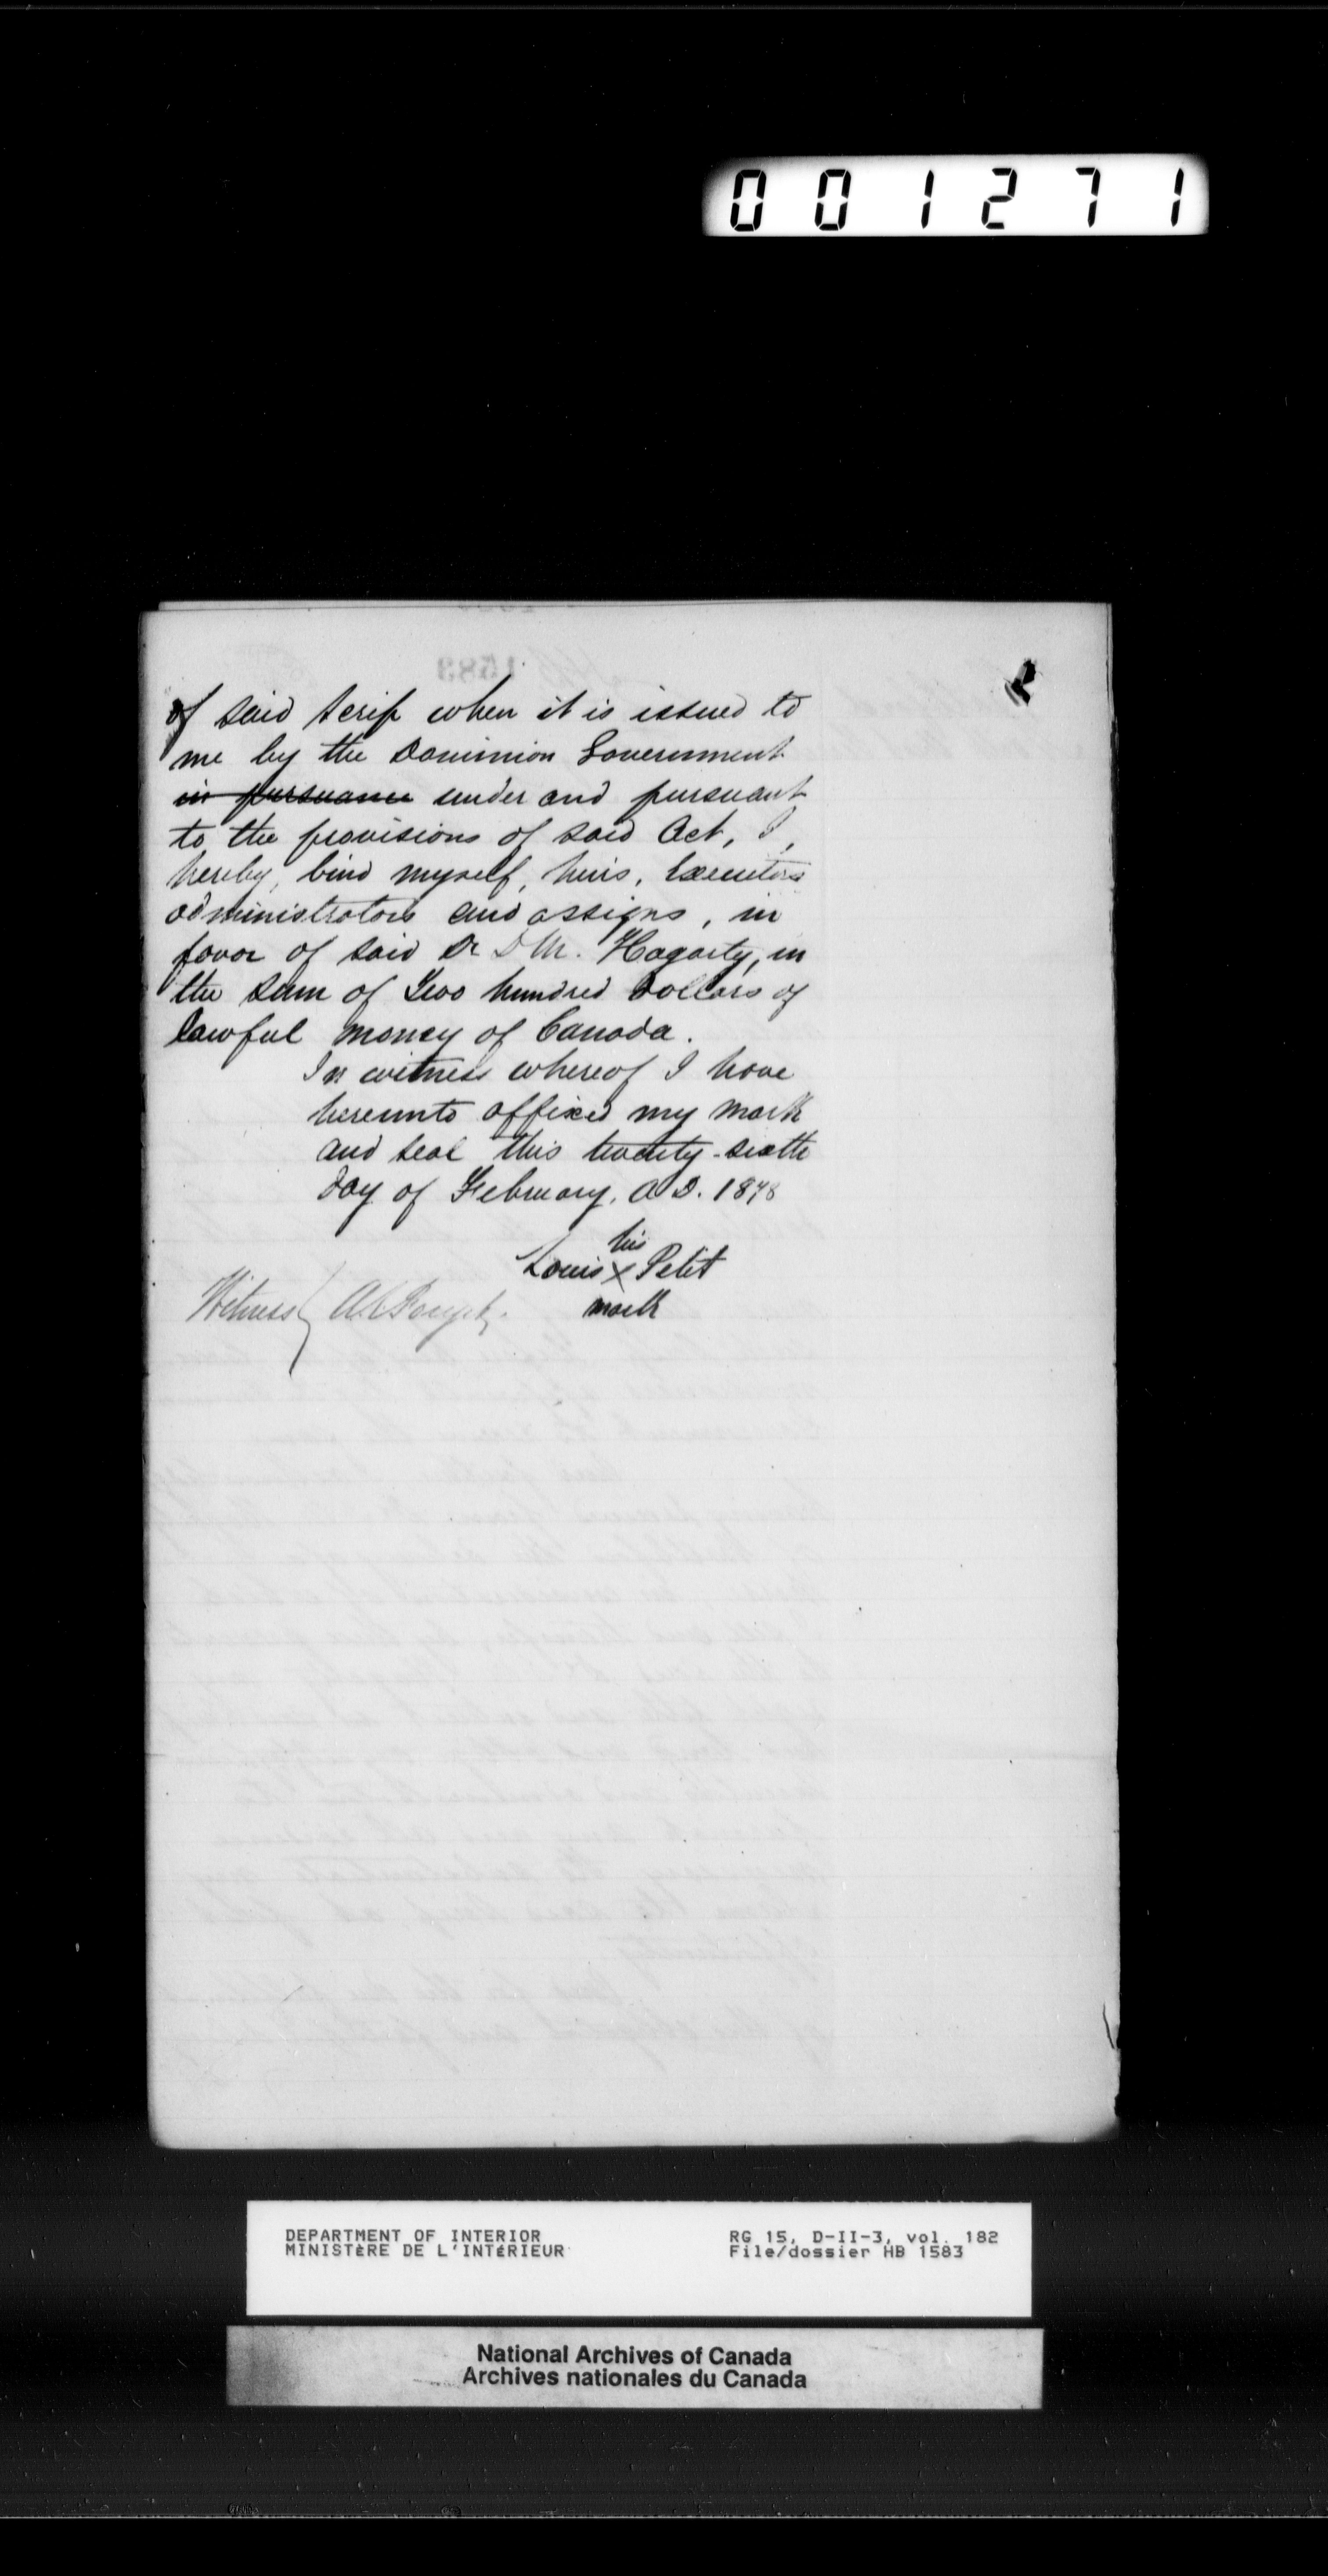 001271
of said scrip when it is issued to
me by the Dominion Government
in pursuance under and pursuant
to the provisions of said Act, I,
hereby, bind myself, heirs, Executors
administrators and assigns, in
favor of said Dr D M. Hagarty, in
the sum of Two hundred Dollars of
lawful money of Canada.
In witness whereof I have
hereunto affixed my mark
and seal this twenty-sixth
day of February, A.D. 1878
his
Louis X Petit
mark
Witness
DEPARTMENT OF INTERIOR
MINISTÈRE DE L'INTÉRIEUR
RG 15, D-II-3, vol. 182
File/dossier HB 1583
National Archives of Canada
Archives nationales du Canada